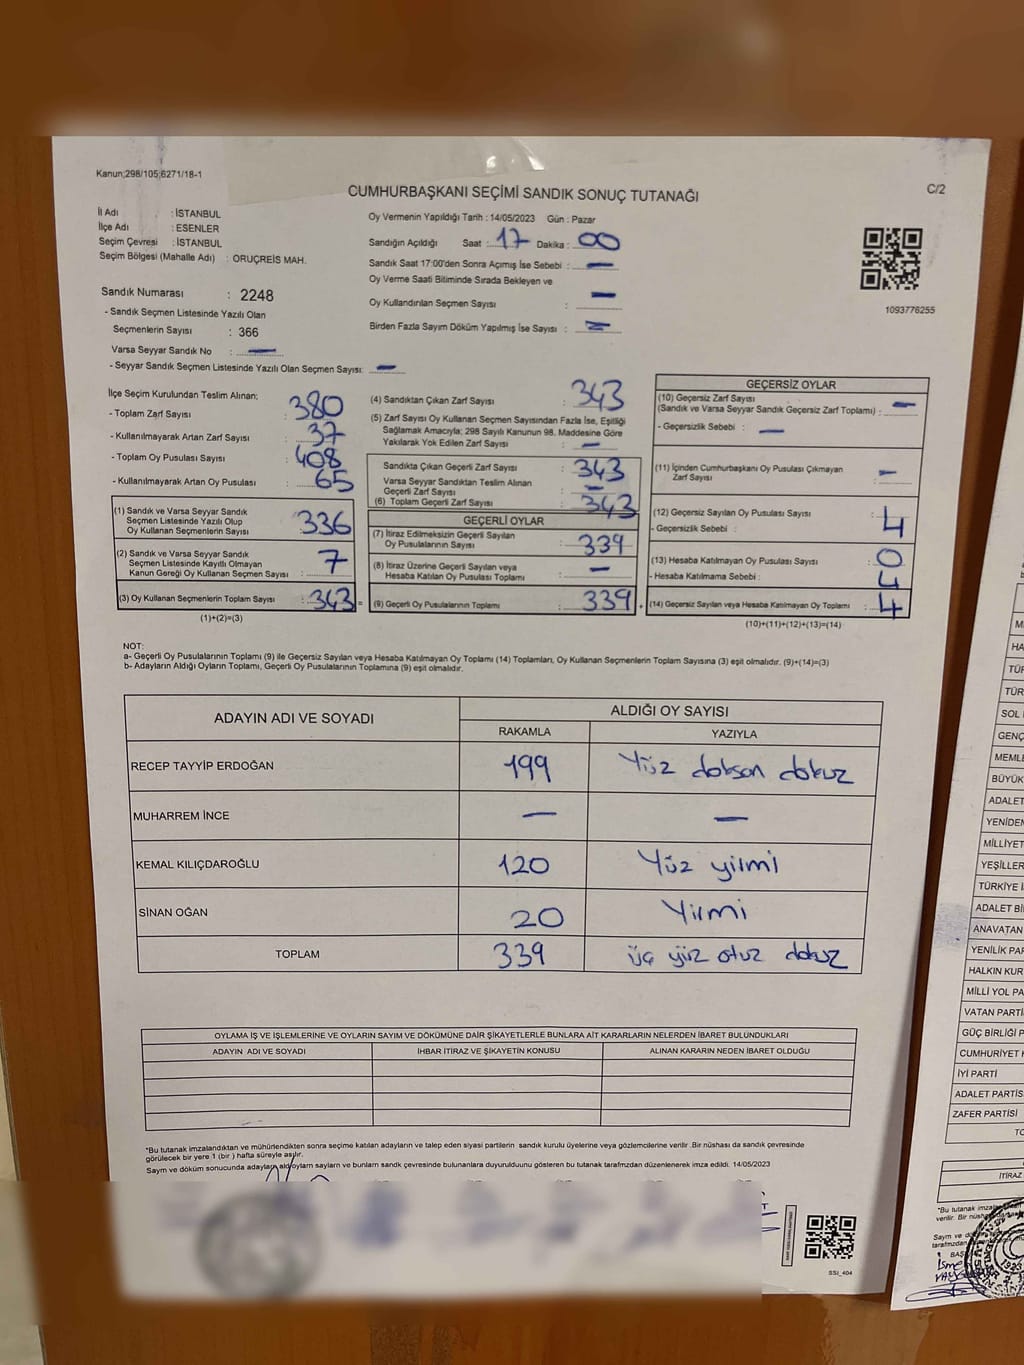 Kanun;298/105;6271/18-1
CUMHURBAŞKANI SEÇİMİ SANDIK SONUÇ TUTANAĞI
C/2
İl Adı : İSTANBUL
İlçe Adı : ESENLER
Seçim Çevresi : İSTANBUL
Seçim Bölgesi (Mahalle Adı) : ORUÇREİS MAH.
Oy Vermenin Yapıldığı Tarih : 14/05/2023 Gün : Pazar
Sandığın Açıldığı Saat : 17 Dakika : 00
Sandık Saat 17:00'den Sonra Açımış İse Sebebi : —
Oy Verme Saati Bitiminde Sırada Bekleyen ve
Oy Kullandırılan Seçmen Sayısı : —
Birden Fazla Sayım Döküm Yapılmış İse Sayısı : —
1093776255
Sandık Numarası : 2248
- Sandık Seçmen Listesinde Yazılı Olan
Seçmenlerin Sayısı : 366
Varsa Seyyar Sandık No : —
- Seyyar Sandık Seçmen Listesinde Yazılı Olan Seçmen Sayısı: —
İlçe Seçim Kurulundan Teslim Alınan;
- Toplam Zarf Sayısı : 380
- Kullanılmayarak Artan Zarf Sayısı : 37
- Toplam Oy Pusulası Sayısı : 408
- Kullanılmayarak Artan Oy Pusulası : 65
(1) Sandık ve Varsa Seyyar Sandık
Seçmen Listesinde Yazılı Olup
Oy Kullanan Seçmenlerin Sayısı : 336
(2) Sandık ve Varsa Seyyar Sandık
Seçmen Listesinde Kayıtlı Olmayan
Kanun Gereği Oy Kullanan Seçmen Sayısı : 7
(3) Oy Kullanan Seçmenlerin Toplam Sayısı : 343 =
(1)+(2)=(3)
(4) Sandıktan Çıkan Zarf Sayısı : 343
(5) Zarf Sayısı Oy Kullanan Seçmen Sayısından Fazla İse, Eşitliği
Sağlamak Amacıyla; 298 Sayılı Kanunun 98. Maddesine Göre
Yakılarak Yok Edilen Zarf Sayısı : —
Sandıkta Çıkan Geçerli Zarf Sayısı : 343
Varsa Seyyar Sandıktan Teslim Alınan
Geçerli Zarf Sayısı : —
(6) Toplam Geçerli Zarf Sayısı : 343
GEÇERLİ OYLAR
(7) İtiraz Edilmeksizin Geçerli Sayılan
Oy Pusulalarının Sayısı : 339
(8) İtiraz Üzerine Geçerli Sayılan veya
Hesaba Katılan Oy Pusulası Toplamı : —
(9) Geçerli Oy Pusulalarının Toplamı : 339 +
GEÇERSİZ OYLAR
(10) Geçersiz Zarf Sayısı
(Sandık ve Varsa Seyyar Sandık Geçersiz Zarf Toplamı) : —
- Geçersizlik Sebebi : —
(11) İçinden Cumhurbaşkanı Oy Pusulası Çıkmayan
Zarf Sayısı : —
(12) Geçersiz Sayılan Oy Pusulası Sayısı : 4
- Geçersizlik Sebebi :
(13) Hesaba Katılmayan Oy Pusulası Sayısı : 0
- Hesaba Katılmama Sebebi : 4
(14) Geçersiz Sayılan veya Hesaba Katılmayan Oy Toplamı : 4
(10)+(11)+(12)+(13)=(14)
NOT:
a- Geçerli Oy Pusulalarının Toplamı (9) ile Geçersiz Sayılan veya Hesaba Katılmayan Oy Toplamı (14) Toplamları, Oy Kullanan Seçmenlerin Toplam Sayısına (3) eşit olmalıdır. (9)+(14)=(3)
b- Adayların Aldığı Oyların Toplamı, Geçerli Oy Pusulalarının Toplamına (9) eşit olmalıdır.
ADAYIN ADI VE SOYADI ALDIĞI OY SAYISI
RAKAMLA YAZIYLA
RECEP TAYYİP ERDOĞAN 199 Yüz doksan dokuz
MUHARREM İNCE — —
KEMAL KILIÇDAROĞLU 120 Yüz yirmi
SİNAN OĞAN 20 Yirmi
TOPLAM 339 üç yüz otuz dokuz
OYLAMA İŞ VE İŞLEMLERİNE VE OYLARIN SAYIM VE DÖKÜMÜNE DAİR ŞİKAYETLERLE BUNLARA AİT KARARLARIN NELERDEN İBARET BULUNDUKLARI
ADAYIN ADI VE SOYADI İHBAR İTİRAZ VE ŞİKAYETİN KONUSU ALINAN KARARIN NEDEN İBARET OLDUĞU
*Bu tutanak imzalandıktan ve mühürlendikten sonra seçime katılan adayların ve talep eden siyasi partilerin sandık kurulu üyelerine veya gözlemcilerine verilir .Bir nüshası da sandık çevresinde
görülecek bir yere 1 (bir ) hafta süreyle asılır.
Sayım ve döküm sonucunda adayların
bu tutanak tarafımızdan düzenlenerek imza edildi. 14/05/2023
SSI_404
SOL
GENÇ
BÜYÜK
ADALET
YENİDEN
MİLLİYET
YEŞİLLER
TÜRKİYE
ADALET
ANAVATAN
YENİLİK
HALKIN KUR
MİLLİ YOL PA
VATAN PARTİ
GÜÇ BİRLİĞİ P
CUMHURİYET
İYİ PARTİ
ADALET PARTİS
ZAFER PARTİSİ
İTİRAZ